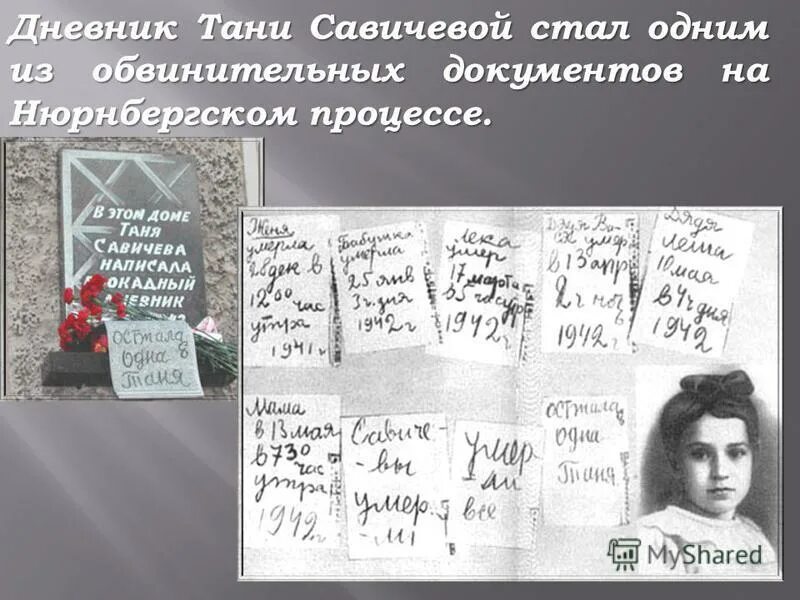 Дневник Тани Савичевой стал одним
из обвинительных документов на
Нюрнбергском процессе.
В ЭТОМ ДОМЕ
ТАНЯ
САВИЧЕВА
НАПИСАЛА
ОКАДНЫЙ
ЕВНИК
осталась
одна
Таня
Женя
умерла
28 дек в
12 00 час
утра
1941 г
Бабушка
умерла
25 янв
3 ч. дня
1942 г
Лека
умер
17 марта
в 5 час утр
1942 г
Дядя Ва
ся умер
в 13 апр
2 ч ноч
1942 г
Дядя
Леша
10 мая
в 4 ч дня
1942
Мама
в 13 мая
в 7 30
час
утра
1942 г
Савиче
-вы
умер
-ли
умер
-ли
все
осталась
одна
Таня
MyShared